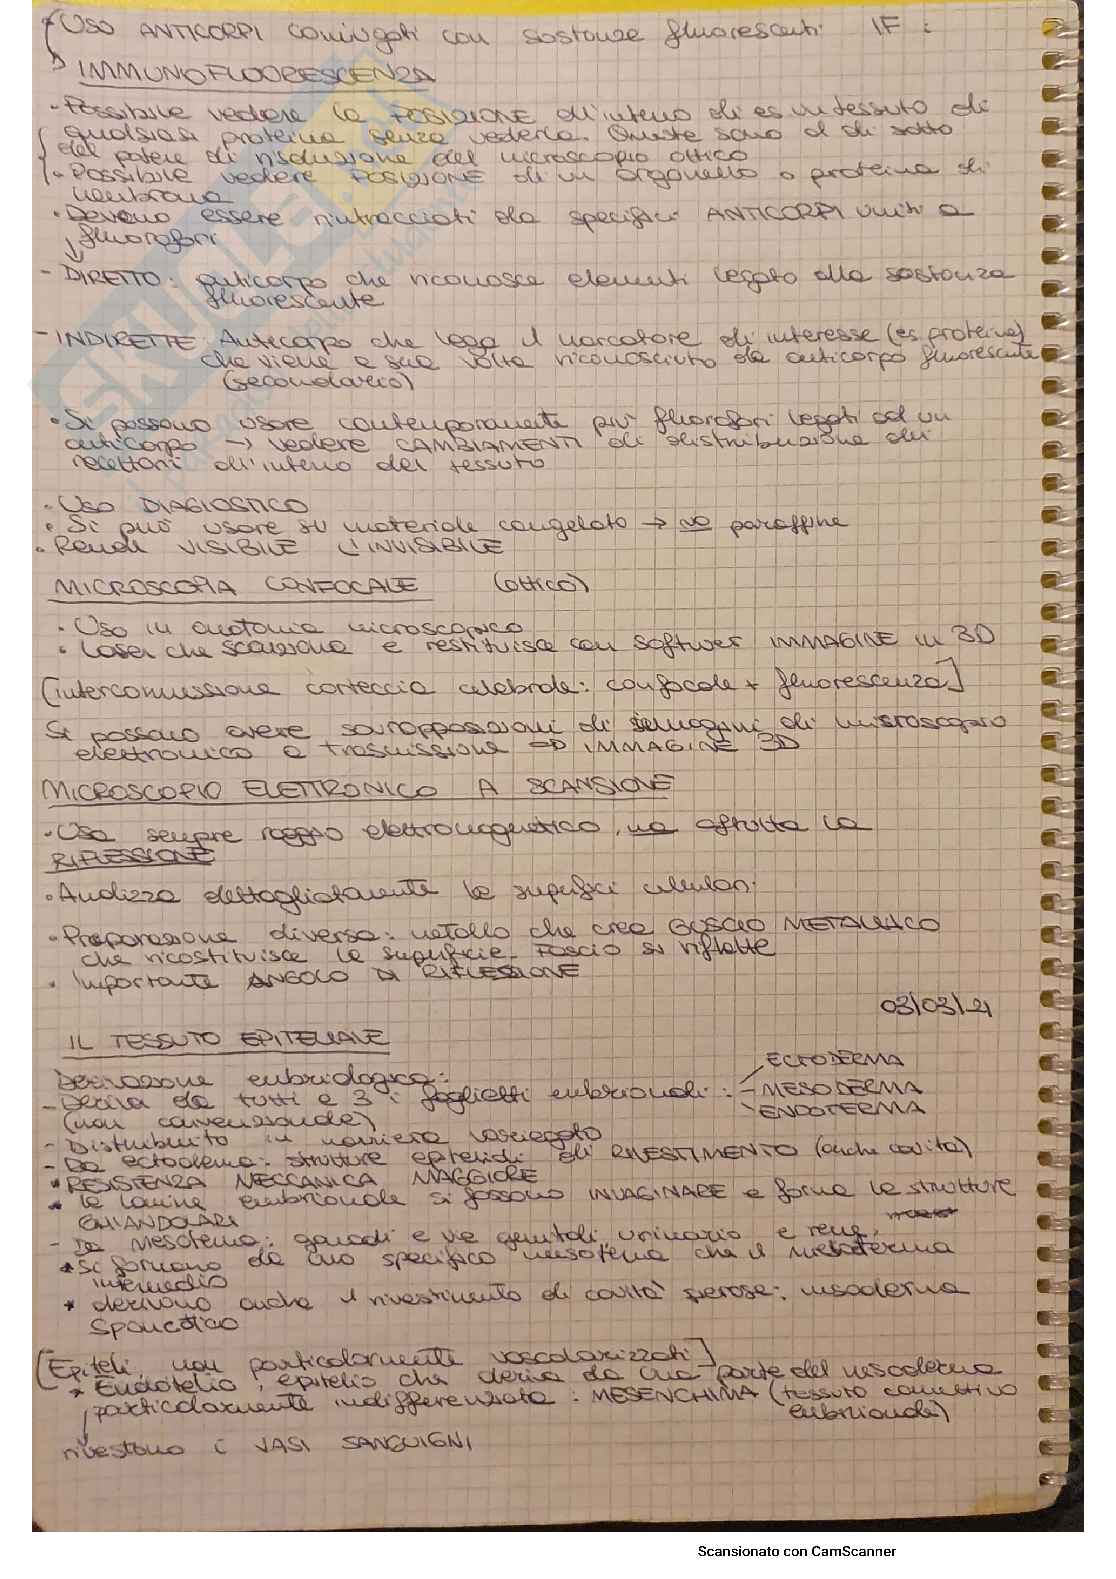 Uso ANTICORPI coniugati con sostanze fluorescenti IF:
IMMUNOFLUORESCENZA
- Possibile vedere la POSIZIONE all'interno di es un tessuto di
qualsiasi proteina senza vederla. Queste sono al di sotto
del potere di risoluzione del microscopio ottico
- Possibile vedere POSIZIONE di un organello o proteina di
membrana
• Devono essere rintracciati da specifici ANTICORPI uniti a
fluorofori
- DIRETTO: anticorpo che riconosce elementi legato alla sostanza
fluorescente
- INDIRETTE: Anticorpo che lega il marcatore di interesse (es. proteina)
che viene a sua volta riconosciuto da anticorpo fluorescente
(secondario)
• Si possono usare contemporaneamente più fluorofori legati ad un
anticorpo → vedere CAMBIAMENTI di distribuzione dei
recettori all'interno del tessuto
• Uso DIAGIOSTICO
• Si può usare su materiale congelato → no paraffine
• Rendi VISIBILE L'INVISIBILE
MICROSCOPIA CONFOCALE (ottico)
• Uso in anatomia microscopica
• Laser che scansiona e restituisce con softwer IMMAGINE in 3D
[intercomissione corteccia celebrale: confocale + fluorescenza]
Si possono avere sovrapposizioni di immagini di microscopio
elettronico a trasmissione => IMMAGINE 3D
MICROSCOPIO ELETTRONICO A SCANSIONE
• Usa sempre raggio elettromagnetico, ma sfrutta la
RIFLESSIONE
• Analizza dettagliatamente le superfici cellulari
• Preparazione diversa: metallo che crea GUSCIO METALLICO
che ricostituisce la superficie. Fascio si riflette
• Importante ANGOLO DI RIFLESSIONE
03/03/21
IL TESSUTO EPITELIALE
Derivazione embriologica:
- Deriva da tutti e 3 i foglietti embrionali: - ECTODERMA
- MESODERMA
- ENDOTERMA
(non convenzionale)
- Distribuito in maniera variegato
- Da ectoderma: strutture epiteliali di RIVESTIMENTO (anche cavità)
* RESISTENZA MECCANICA MAGGIORE
* le lamine embrionale si possono INVAGINARE e forma le strutture
GHIANDOLARI
- Da mesoderma: gonadi e vie genitali, urinario e rene,
* Si formano da uno specifico mesoderma che il mesoderma
intermedio
* derivano anche il rivestimento di cavità sierose: mesoderma
Spancnico
[Epiteli non particolarmente vascolarizzati]
* Endotelio, epitelio che deriva da una parte del mesoderma
particolarmente indifferenziata: MESENCHIMA (tessuto connettivo
embrionale)
rivestono i VASI SANGUIGNI
Scansionato con CamScanner